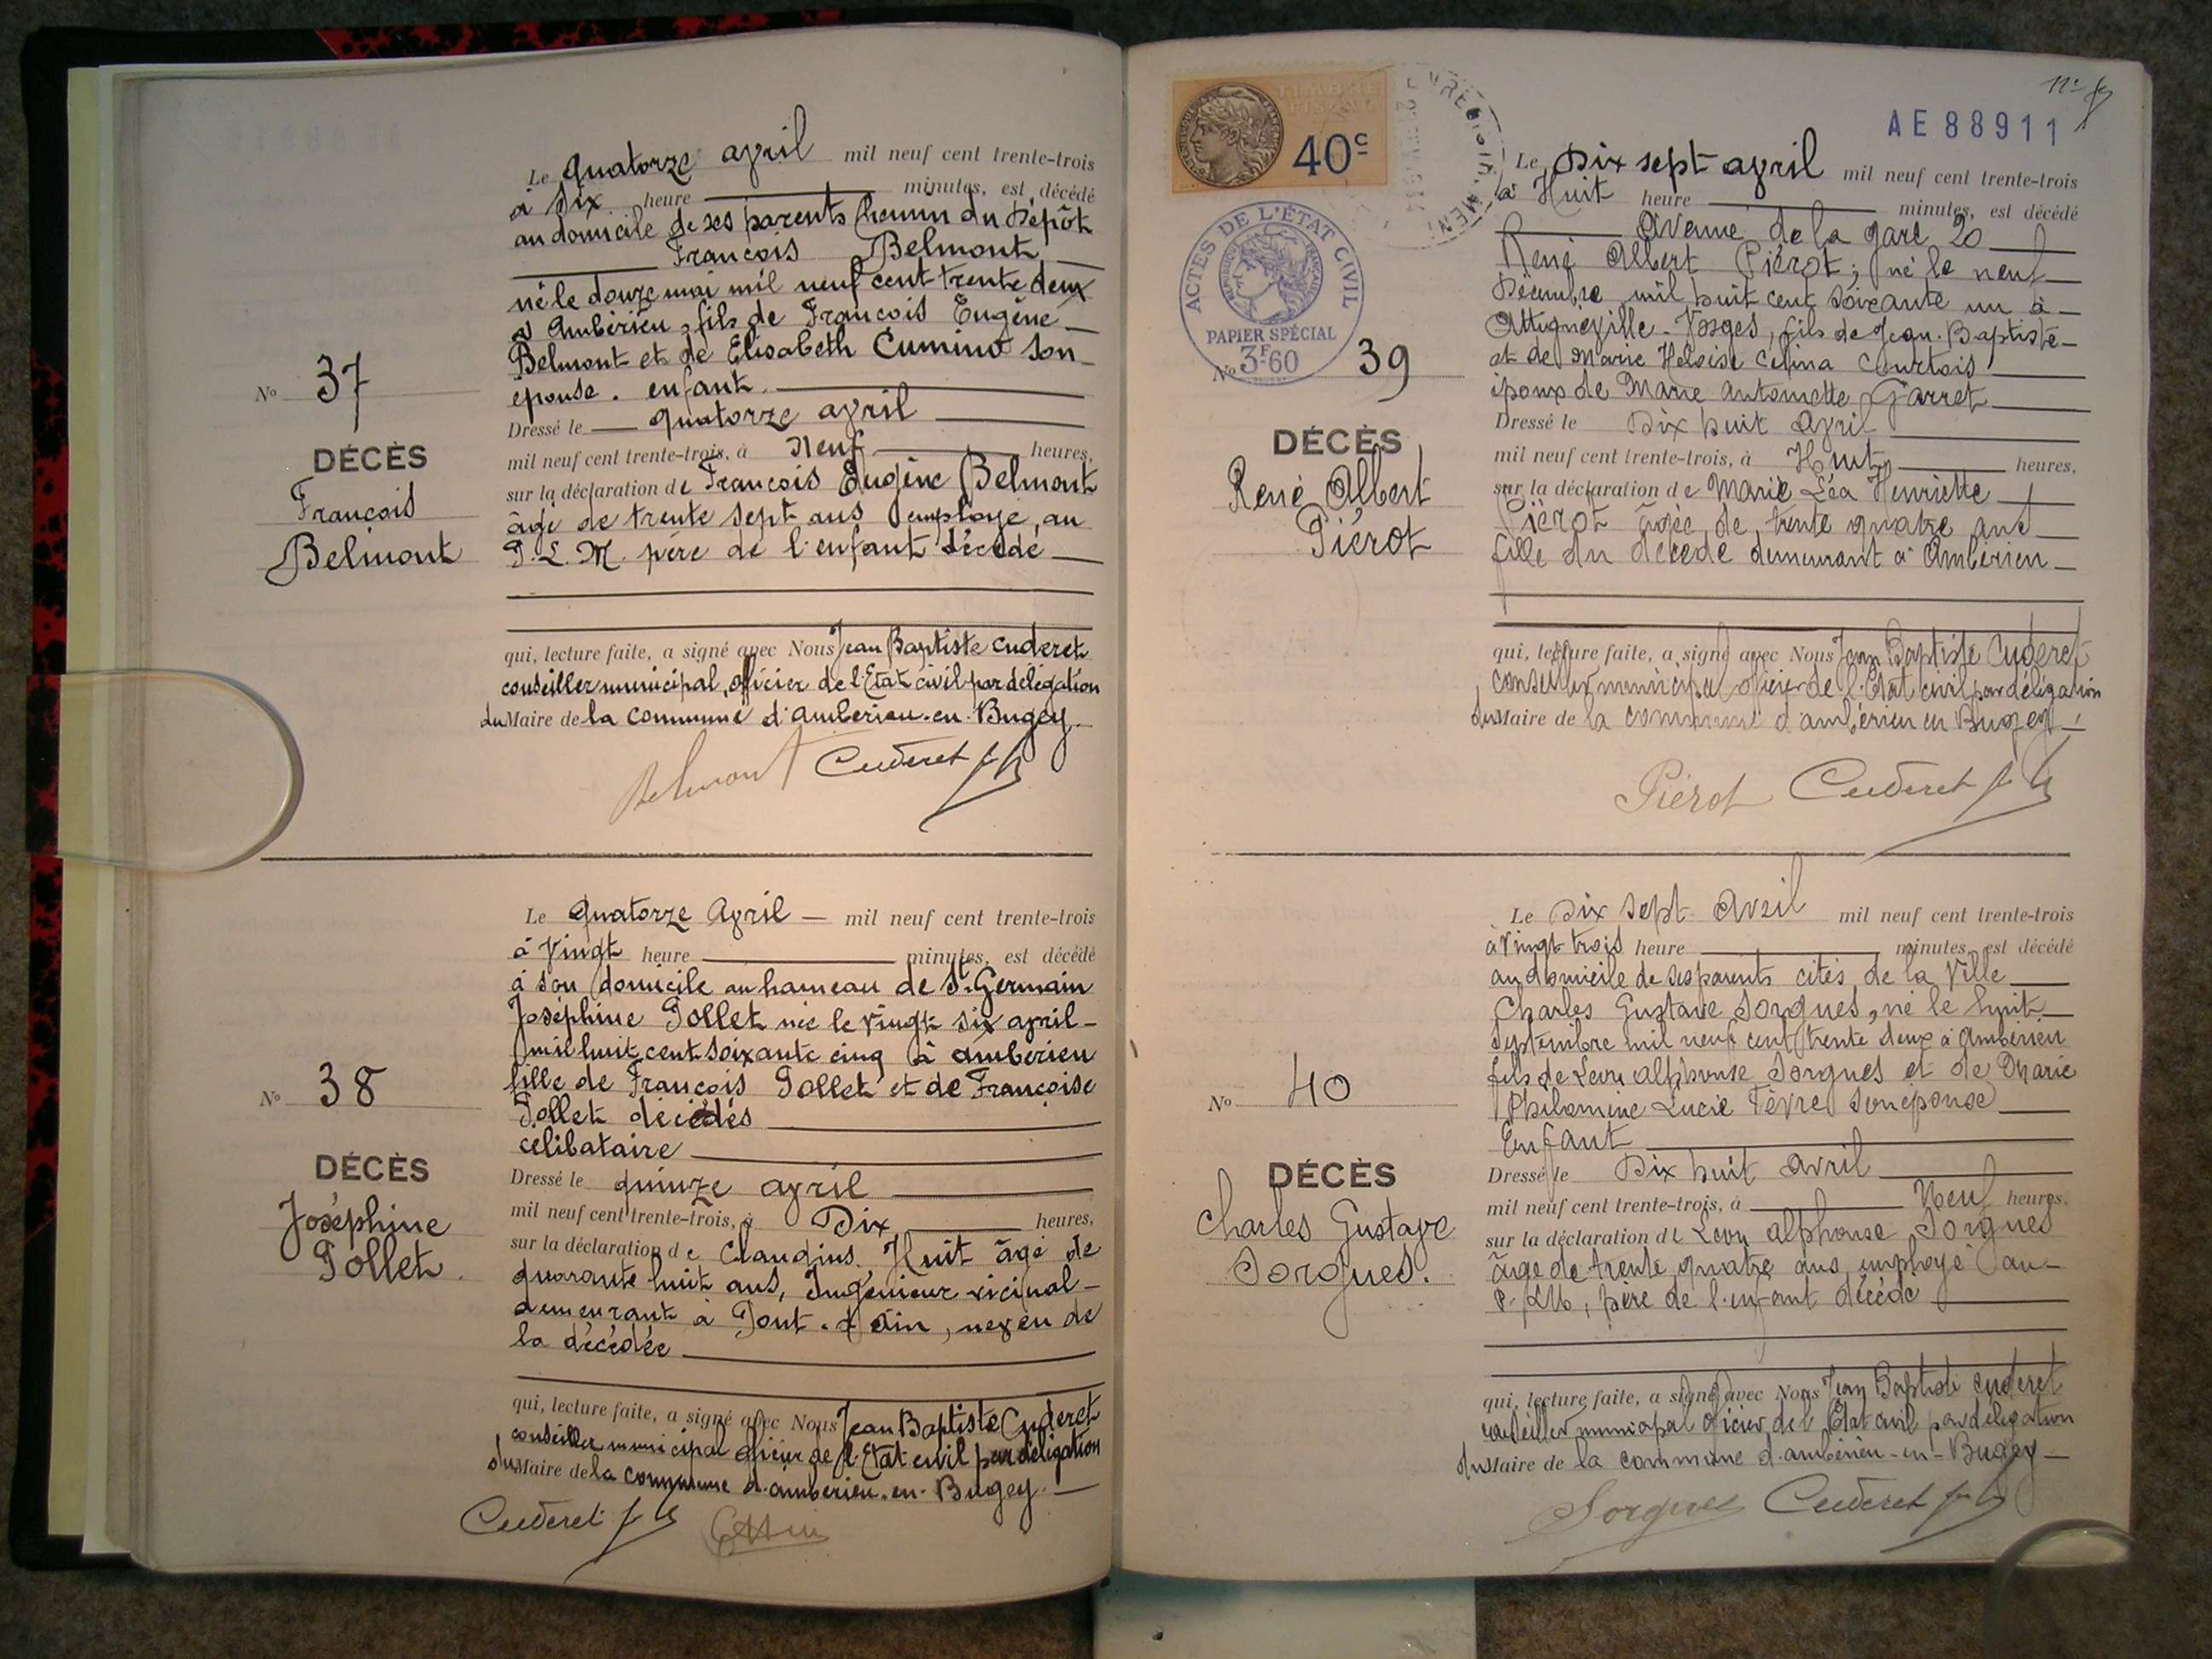 Le quatorze avril mil neuf cent trente-trois
à six heure minutes, est décédé
au domicile de ses parents Chemin du Dépôt
François Belmont
né le douze mai mil neuf cent trente deux
à Ambérieu, fils de François Eugène
Belmont et de Elisabeth Cumino son
épouse. enfant.
Dressé le quatorze avril
mil neuf cent trente-trois, à Neuf heures,
sur la déclaration de François Eugène Belmont
âgé de trente sept ans employé au
P.L.M. père de l'enfant décédé
qui, lecture faite, a signé avec Nous Jean Baptiste Cuderet
conseiller municipal, officier de l'Etat civil par délégation
du Maire de la commune d'Ambérieu-en-Bugey
Belmont Cuderet
No 37
DÉCÈS
François
Belmont
Le quatorze Avril mil neuf cent trente-trois
à Vingt heure minutes, est décédé
à son domicile au hameau de St Germain
Joséphine Pollet née le vingt six avril
mil huit cent soixante cinq à Ambérieu
fille de François Pollet et de Françoise
Pollet décédés
célibataire
Dressé le quinze avril
mil neuf cent trente-trois, à Dix heures,
sur la déclaration de Claudius Huit âgé de
quarante huit ans, Ingénieur vicinal
demeurant à Pont-d'Ain, neveu de
la décédée
qui, lecture faite, a signé avec Nous Jean Baptiste Cuderet
conseiller municipal officier de l'Etat civil par délégation
du Maire de la commune d'ambérieu-en-Bugey
Cuderet
No 38
DÉCÈS
Joséphine
Pollet
TIMBRE
FISCAL
40c
AE88911
ACTES DE L'ÉTAT CIVIL
PAPIER SPÉCIAL
3F60
Le Dix sept avril mil neuf cent trente-trois
à Huit heure minutes, est décédé
Avenue de la gare 20
René Albert Piérot, né le neuf
Décembre mil huit cent soixante un à
Attignéville-Vosges, fils de Jean-Baptiste
et de Marie Heloïse Celina Courtois
époux de Marie Antoinette Garret
Dressé le Dix huit Avril
mil neuf cent trente-trois, à Huit heures,
sur la déclaration de Marie Léa Henriette
Piérot âgée de trente quatre ans
fille du décédé demeurant à Ambérieu
qui, lecture faite, a signé avec Nous Jean Baptiste Cuderet
conseiller municipal officier de l'Etat civil par délégation
du Maire de la commune d'ambérieu en Bugey
Piérot Cuderet
No 39
DÉCÈS
René Albert
Piérot
Le Dix sept Avril mil neuf cent trente-trois
à Vingt trois heure minutes, est décédé
au domicile de ses parents cités de la Ville
Charles Gustave Sorgues, né le huit
Septembre mil neuf cent trente deux à Ambérieu
fils de Léon alphonse Sorgues et de Marie
Philomine Lucie Fèvre son épouse
Enfant
Dressé le Dix huit avril
mil neuf cent trente-trois, à Neuf heures.
sur la déclaration de Léon alphonse Sorgues
âgé de trente quatre ans employé au
P.L.M., père de l'enfant décédé
qui, lecture faite, a signé avec Nous Jean Baptiste Cuderet
conseiller municipal officier de l'Etat civil par délégation
du Maire de la commune d'ambérieu-en-Bugey
Sorgues Cuderet
No 40
DÉCÈS
Charles Gustave
Sorgues.